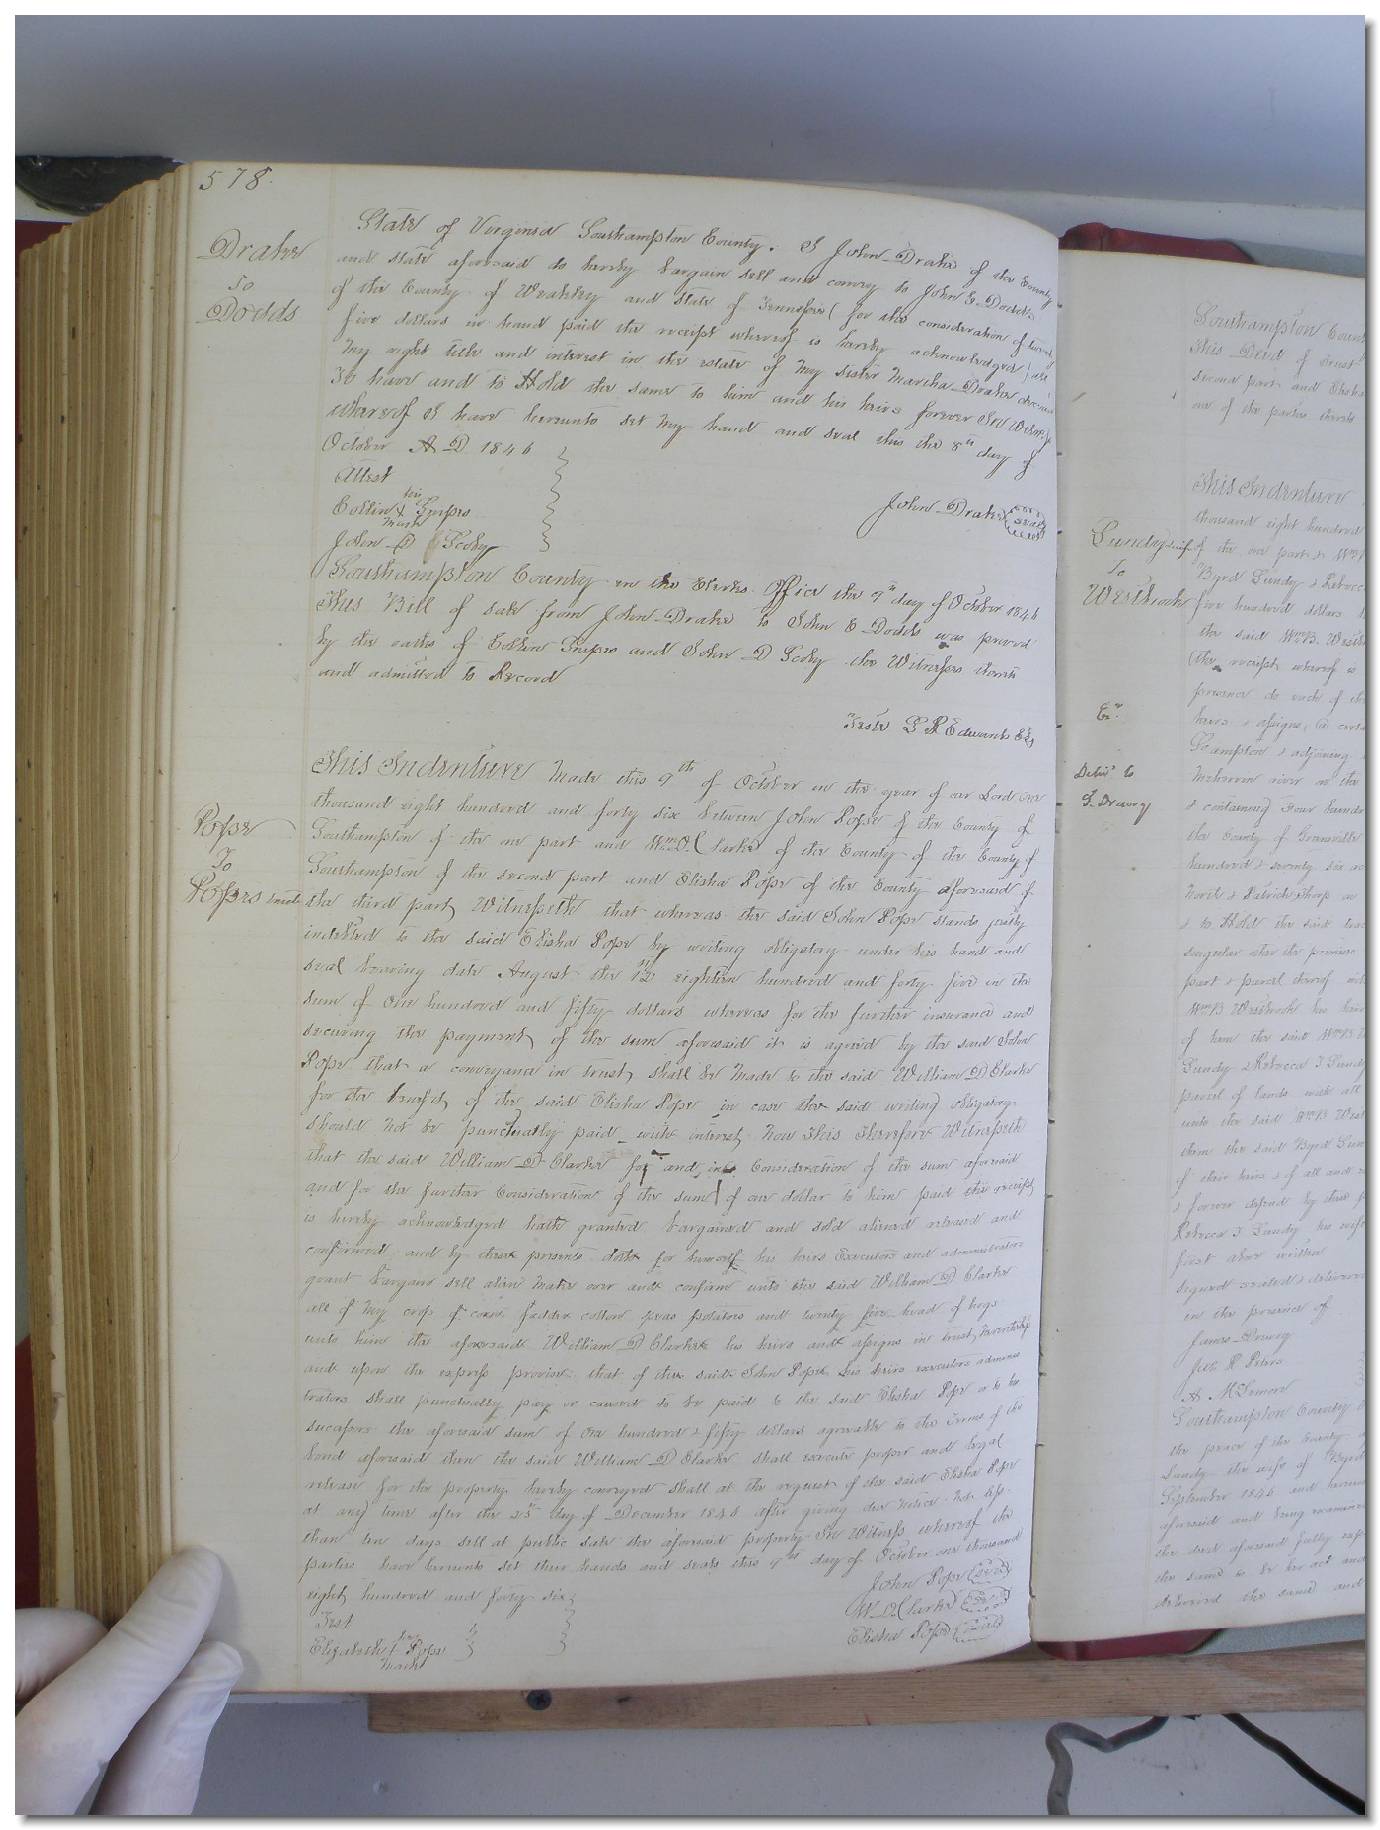 578.
Drake
To
Dodds
State of Virginia Southampton County. I John Drake of the County
and state aforesaid do hereby bargain sell and convey to John E. Dodds
of the County of Weakley and State of Tennessee (for the consideration of twenty
five dollars in hand paid the receipt whereof is hereby acknowledged) all
my right title and interest in the estate of my sister Martha Drake deceased
To have and to Hold the same to him and his heirs forever In Witness
whereof I have hereunto set my hand and seal this the 8th day of
October A D 1846
Attest
his
Collin X
mark
John Drake (Seal)
John D
Southampton County in the Clerks Office the 9th day of October 1846
This Bill of sale from John Drake to John E Dodds was proved
by the oaths of Collin and John D the Witnesses thereto
and admitted to Record
Teste L R Edwards Clk
Pope
To
Popes
This Indenture made this 9th of October in the year of our Lord one
thousand eight hundred and forty six between John Pope of the County of
Southampton of the one part and Wm D. Clarke of the County of the County of
Southampton of the second part and Elisha Pope of the County aforesaid of
the third part, Witnesseth that whereas the said John Pope stands justly
indebted to the said Elisha Pope by writing obligatory under his hand and
seal bearing date August the 12 eighteen hundred and forty five in the
sum of One hundred and fifty dollars whereas for the further insurance and
securing the payment of the sum aforesaid it is agreed by the said John
Pope that a conveyance in trust shall be made to the said William D Clarke
for the benefit of the said Elisha Pope in case the said writing obligatory
should not be punctually paid with interest, now This Therefore Witnesseth
that the said William D Clarke for and in Consideration of the sum aforesaid
and for the further Consideration of the sum of one dollar to him paid the receipt
is hereby acknowledged hath granted bargained and sold aliened released and
confirmed and by these presents doth for himself his heirs Executors and administrators
grant bargain sell alien make over and confirm unto the said William D Clarke
all of my crop of corn fodder cotton peas potatoes and twenty five head of hogs
unto him the aforesaid William D Clarke his heirs and assigns in trust,
and upon the express proviso that of the said John Pope his heirs executors adminis
trators shall punctually pay or caused to be paid to the said Elisha Pope or to his
the aforesaid sum of One hundred & fifty dollars agreeable to the Terms of the
bond aforesaid then the said William D Clarke shall execute proper and legal
release for the property hereby conveyed shall at the request of the said Elisha Pope
at any time after the 25th day of December 1846 after giving due notice not less
than ten days sell at public sale the aforesaid property In Witness whereof the
parties have hereunto set their hands and seals this 9th day of October one thousand
eight hundred and forty six
John Pope (Seal)
Test
W. D. Clarke (Seal)
Elisha Pope (Seal)
her
Elizabeth Pope
mark
Southampton County
This Deed of trust
second part and Elisha
one of the parties thereto
Westbrook
To
Ex.
Deliv'd to
This Indenture
thousand eight hundred
of the one part &
five hundred dollars
the said Wm B. West
the receipt whereof is
presence do each of
heirs & assigns, a certain
& adjoining
Meherrin river on the
& containing four hundred
the County of Greensville
hundred & seventy six
& to Hold the said
singular the the premises
part & parcel thereof
Wm B Westbrook his heirs
of him the said Wm B
parcel of lands with all
unto the said Wm B West
of their heirs & of all and
& forever defend by these
first above written
Signed sealed & delivered
in the presence of
Southampton County
the peace of the County
the wife of Byrd
September 1846 and
aforesaid and being examined
the deed aforesaid fully
the same to be her act and
delivered the same and